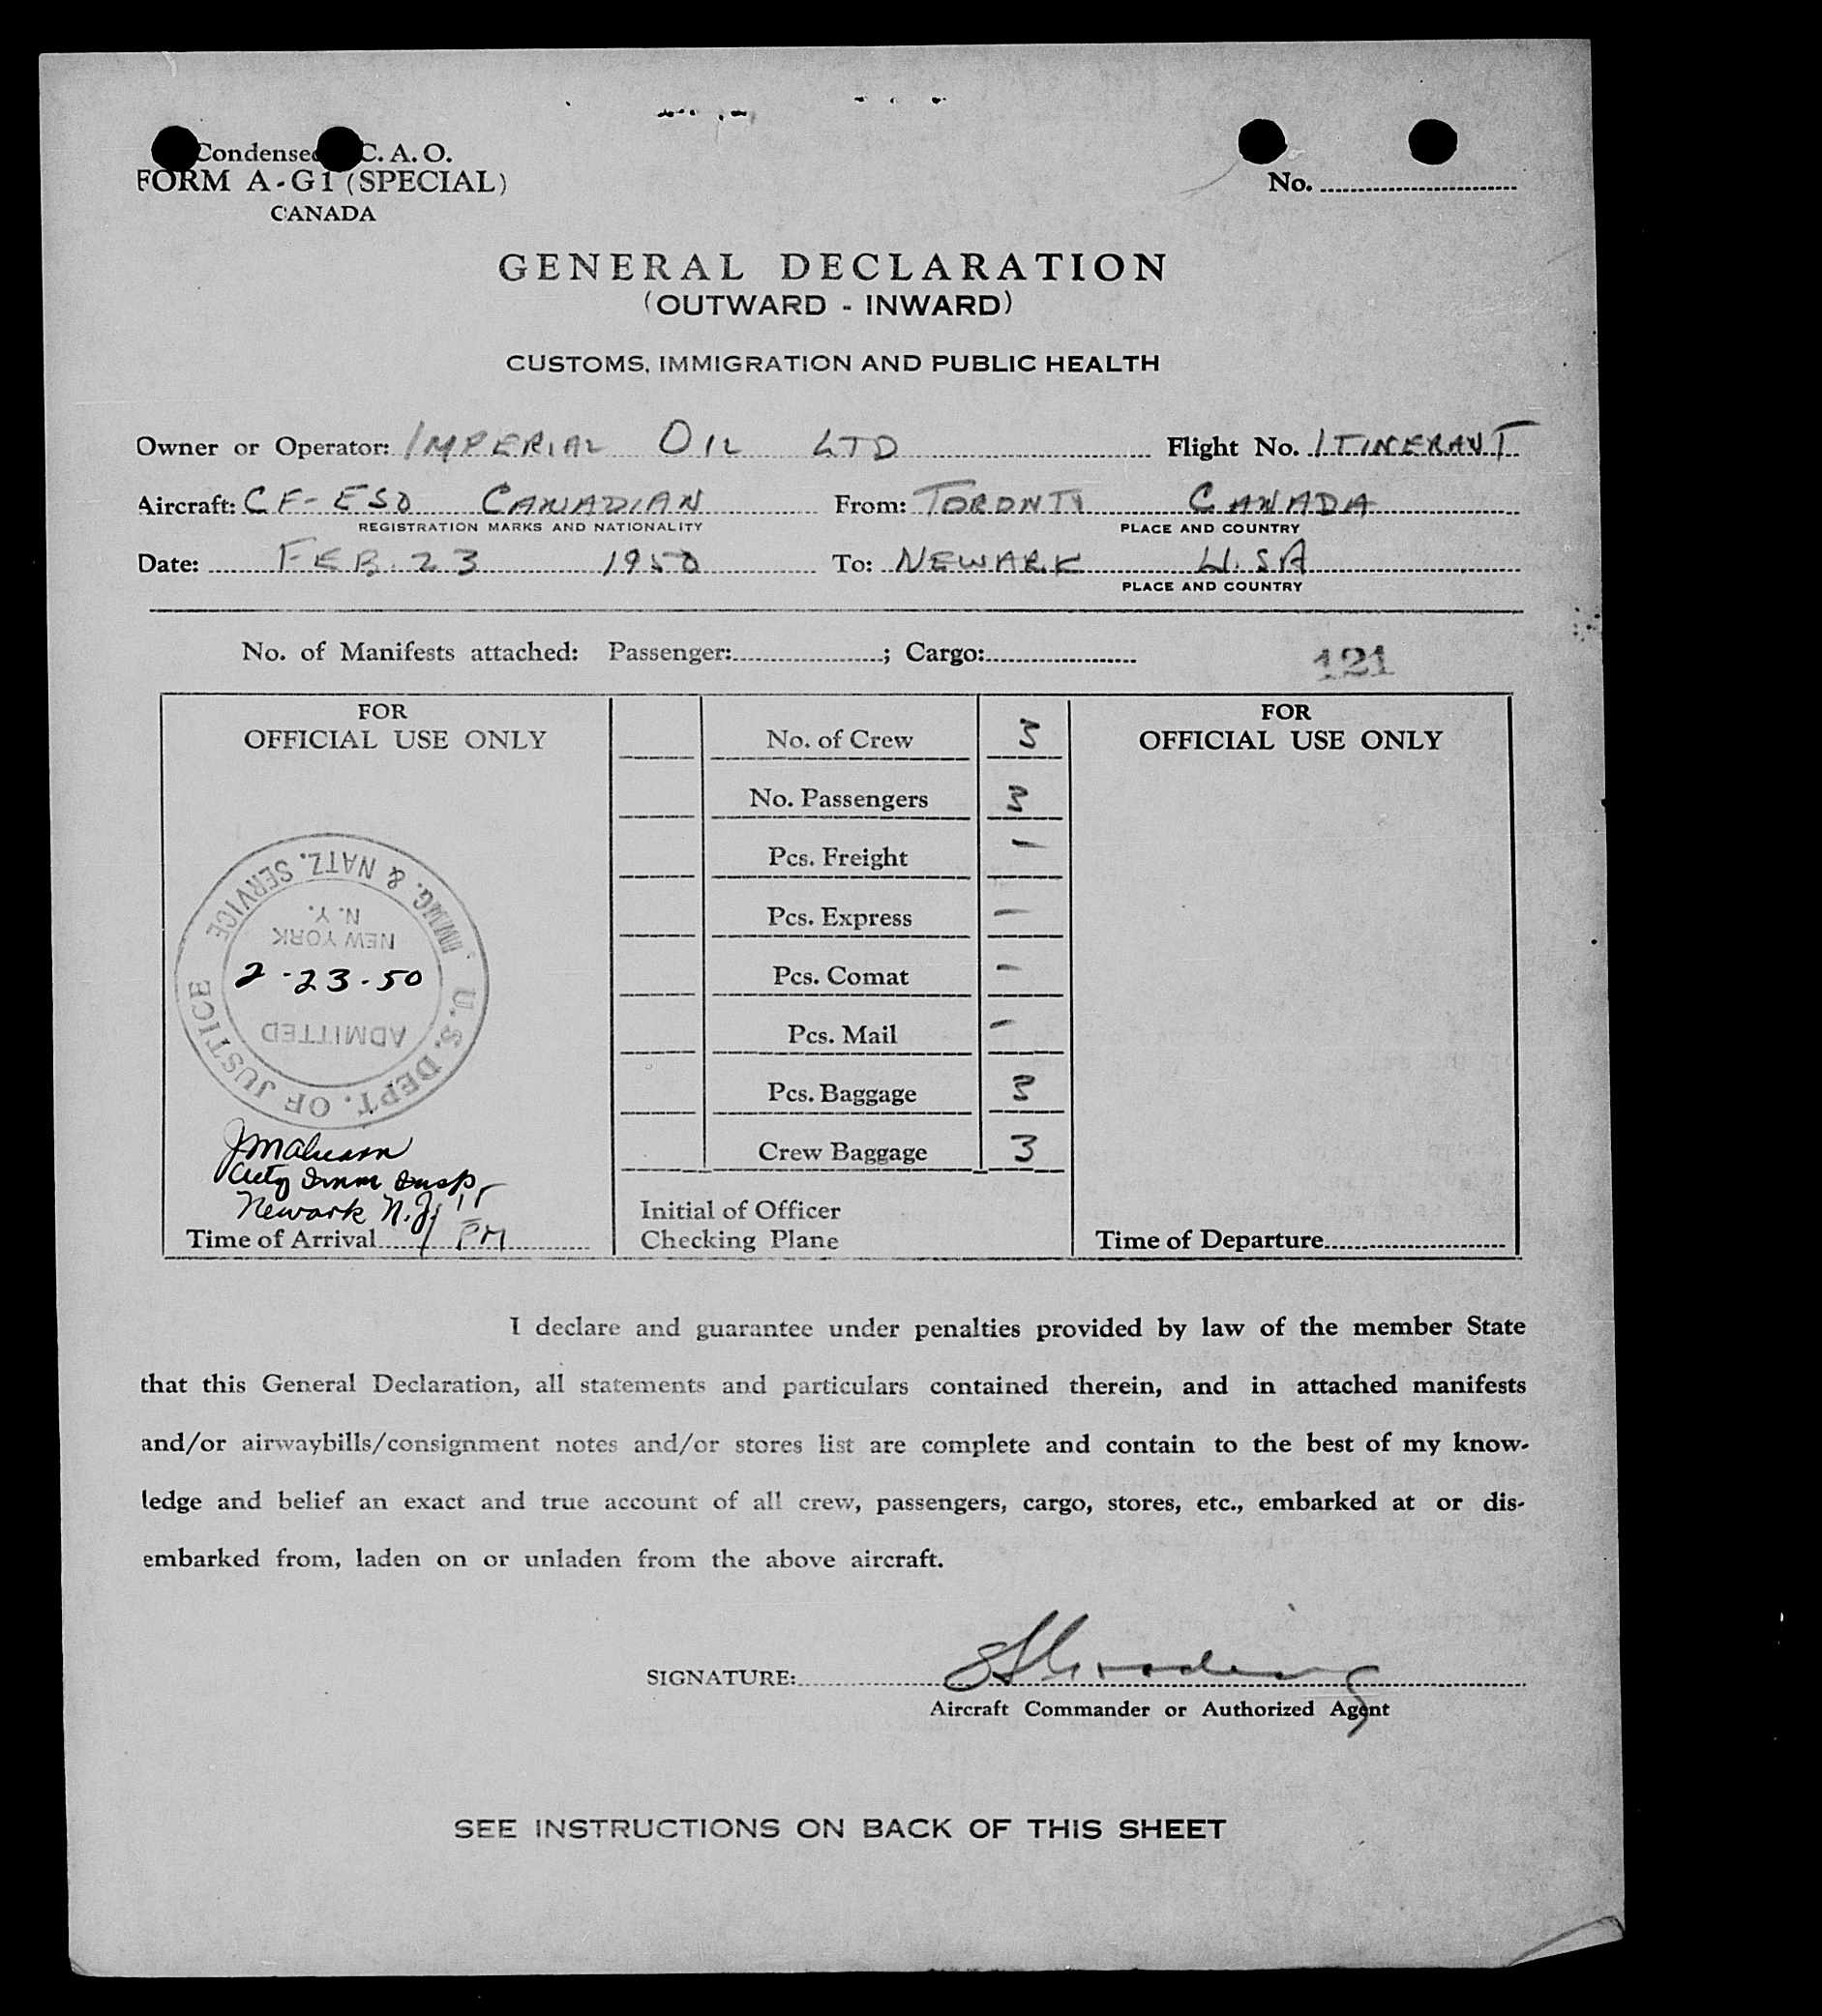 Condensed C. A. O.
FORM A-G1 (SPECIAL)
CANADA
No.
GENERAL DECLARATION
(OUTWARD - INWARD)
CUSTOMS, IMMIGRATION AND PUBLIC HEALTH
Owner or Operator: IMPERIAL OIL LTD Flight No. ITINERANT
Aircraft: CF-ESO CANADIAN From: TORONTO CANADA
REGISTRATION MARKS AND NATIONALITY PLACE AND COUNTRY
Date: FEB. 23 1950 To: NEWARK U.S.A
PLACE AND COUNTRY
No. of Manifests attached: Passenger: ; Cargo:
121
FOR
OFFICIAL USE ONLY
U.S. DEPT. OF JUSTICE
IMMG. & NATZ. SERVICE
ADMITTED
2-23-50
NEW YORK
N.Y.
Imm Insp
Newark N.J.
Time of Arrival PM
No. of Crew 3
No. Passengers 3
Pcs. Freight –
Pcs. Express –
Pcs. Comat –
Pcs. Mail –
Pcs. Baggage 3
Crew Baggage 3
Initial of Officer
Checking Plane
FOR
OFFICIAL USE ONLY
Time of Departure
I declare and guarantee under penalties provided by law of the member State
that this General Declaration, all statements and particulars contained therein, and in attached manifests
and/or airwaybills/consignment notes and/or stores list are complete and contain to the best of my know-
ledge and belief an exact and true account of all crew, passengers, cargo, stores, etc., embarked at or dis-
embarked from, laden on or unladen from the above aircraft.
SIGNATURE:
Aircraft Commander or Authorized Agent
SEE INSTRUCTIONS ON BACK OF THIS SHEET